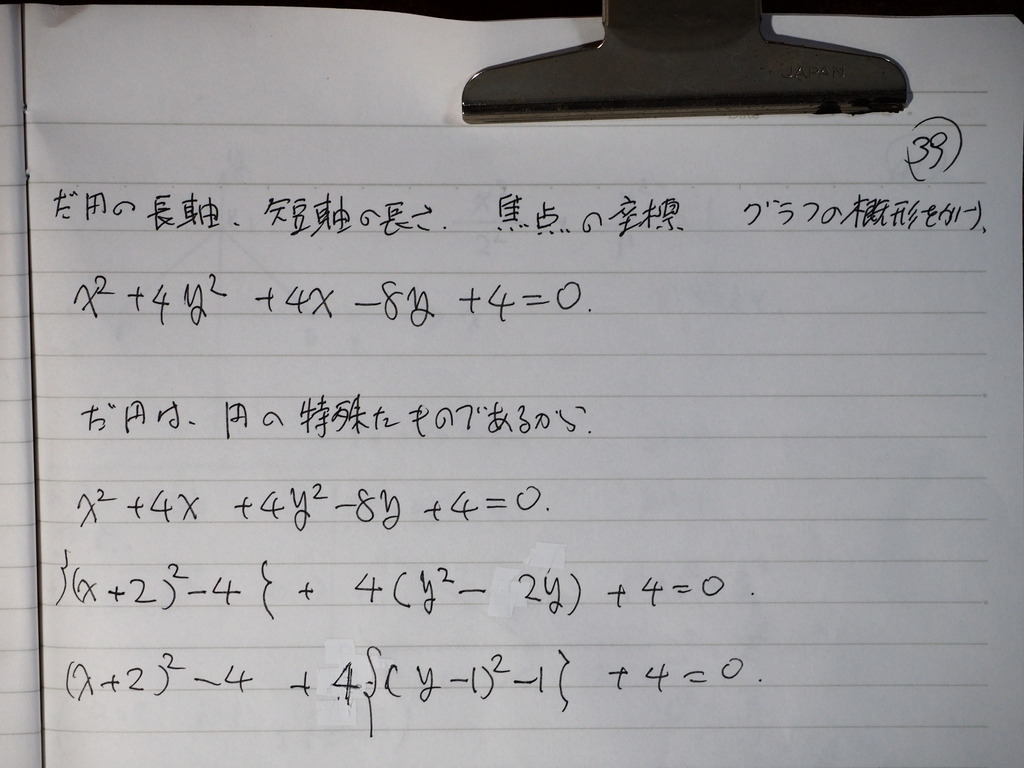 JAPAN
39
だ円の長軸、短軸の長さ、焦点の座標 グラフの概形をかけ、
x² + 4y² + 4x - 8y + 4 = 0.
だ円は、円の特殊たものであるから.
x² + 4x + 4y² - 8y + 4 = 0.
}(x+2)² - 4 { + 4(y² - 2y) + 4 = 0.
(x+2)² - 4 + 4{(y-1)² - 1} + 4 = 0.